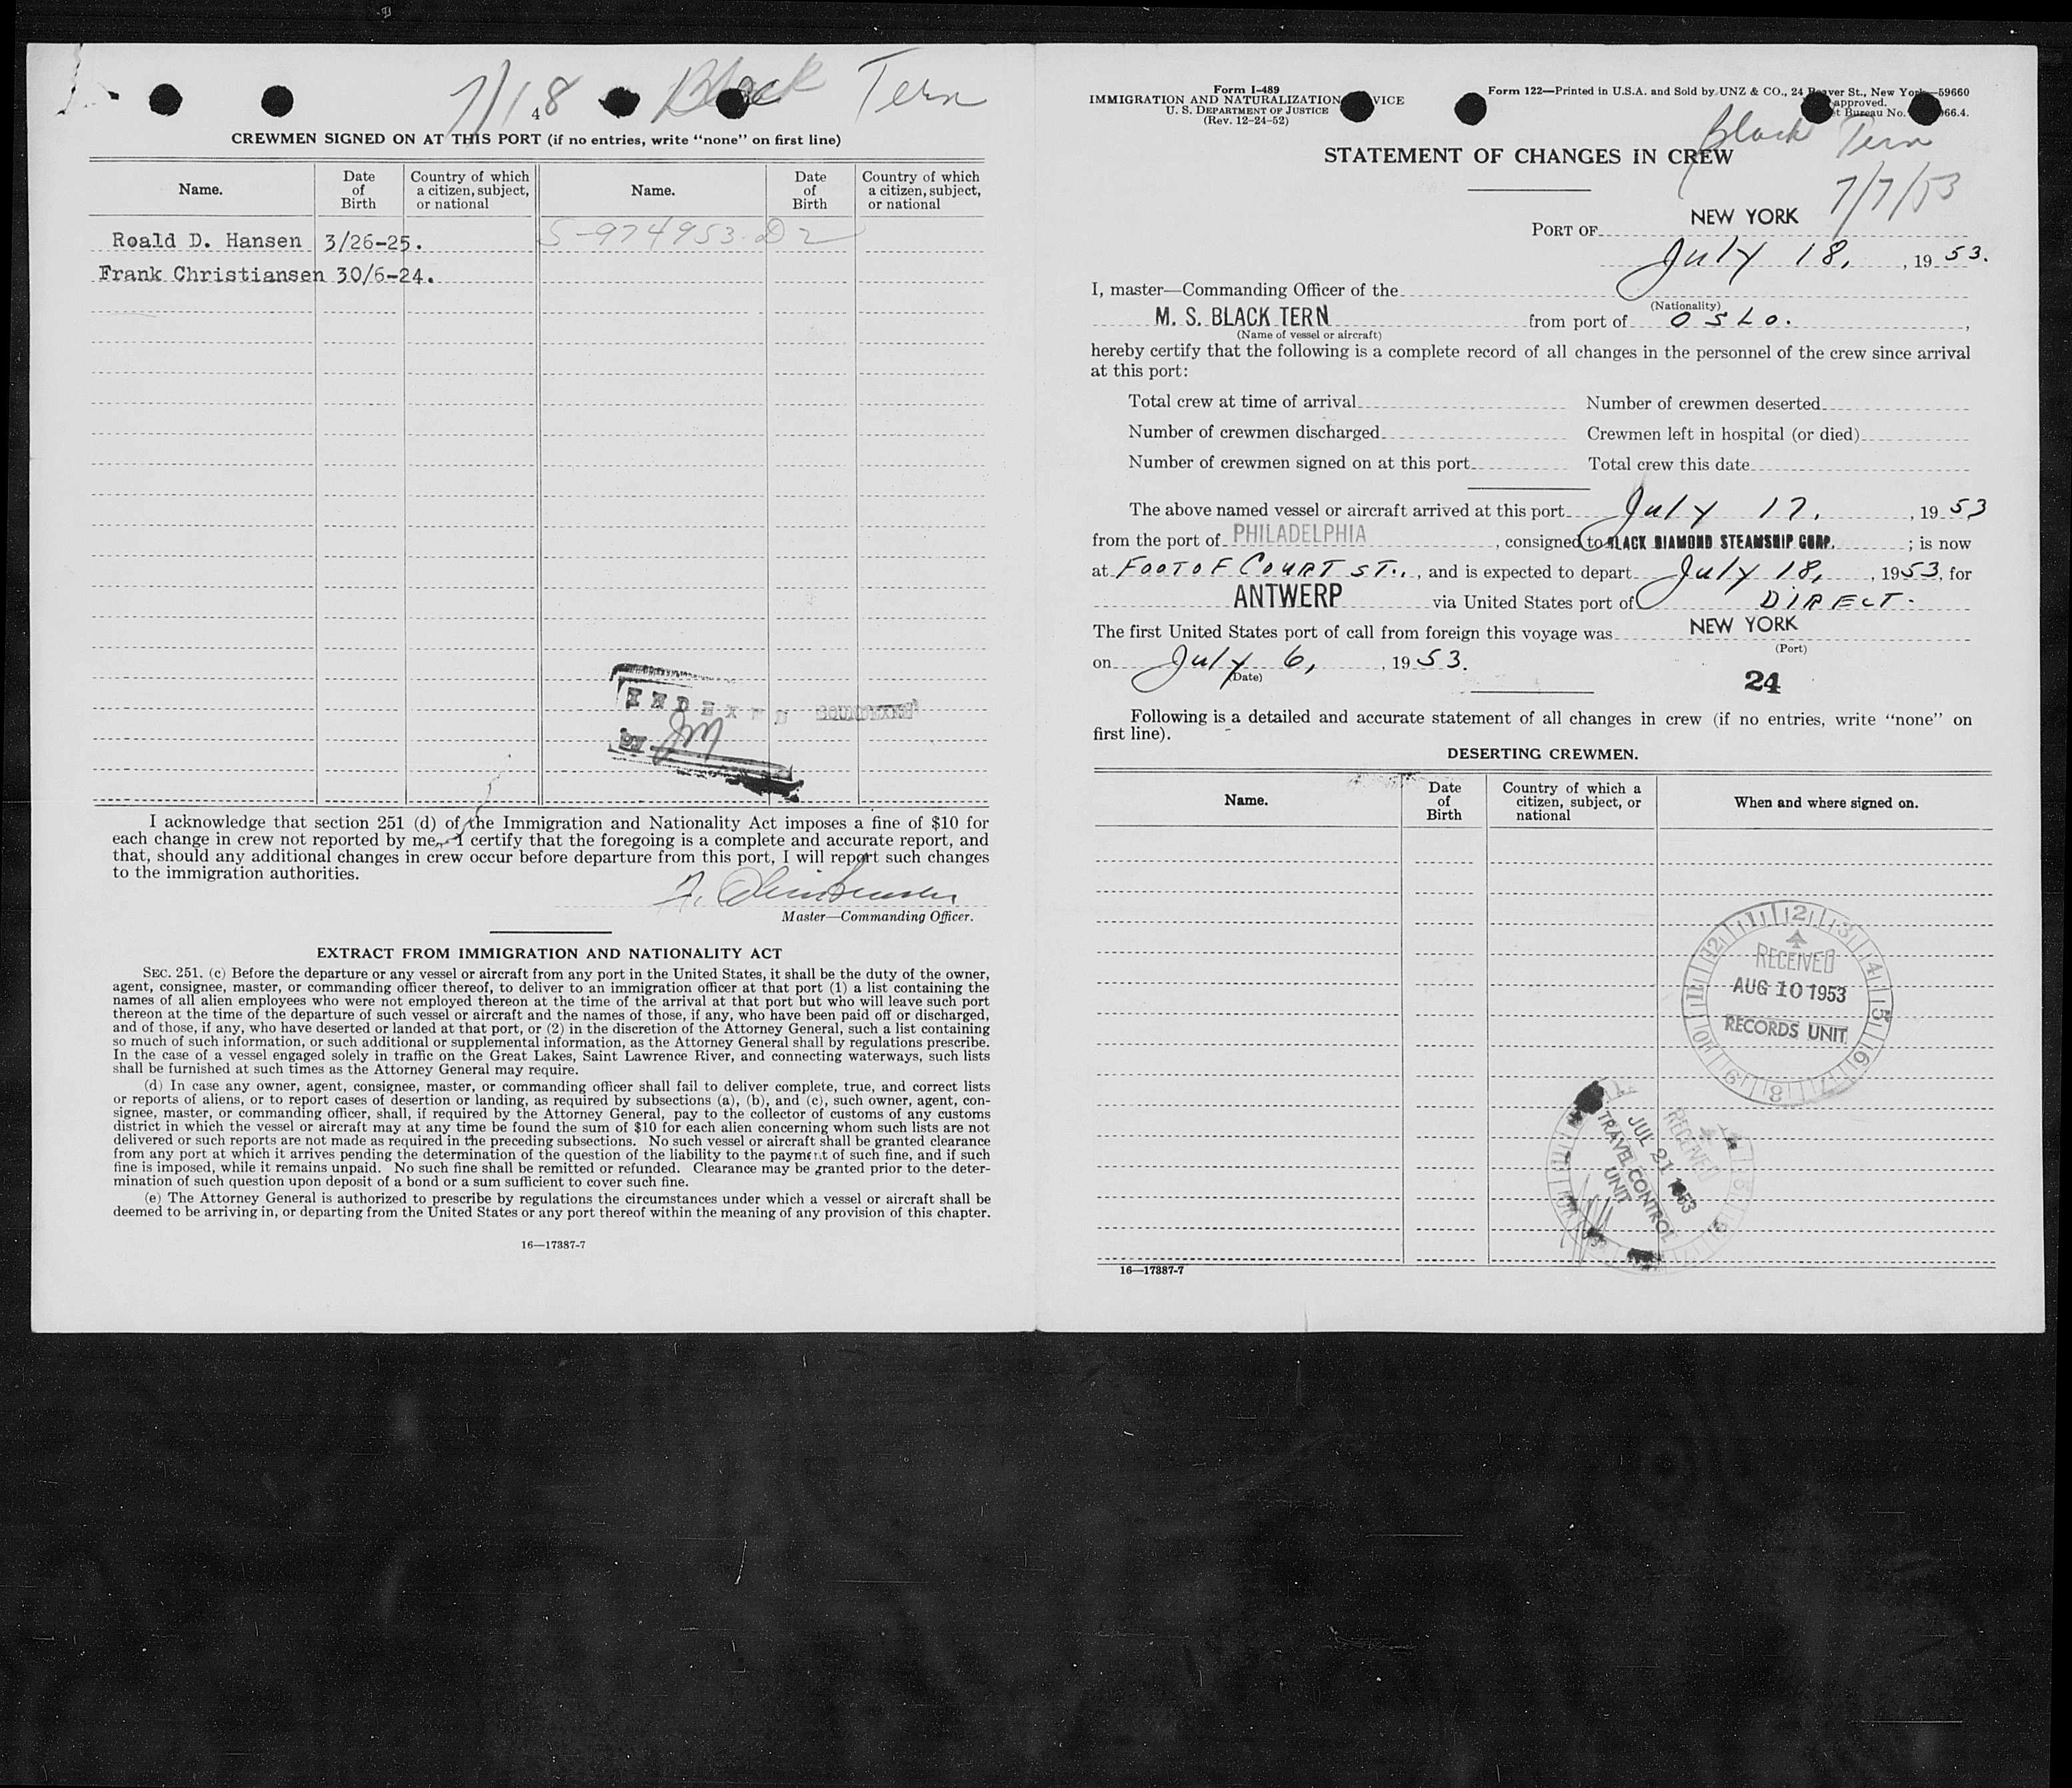 7/18 Black Tern
4
CREWMEN SIGNED ON AT THIS PORT (if no entries, write "none" on first line)
Name. Date of Birth Country of which a citizen, subject, or national Name. Date of Birth Country of which a citizen, subject, or national
Roald D. Hansen 3/26-25. S-974953-D2
Frank Christiansen 30/6-24.
INDEXED
BY JM
I acknowledge that section 251 (d) of the Immigration and Nationality Act imposes a fine of $10 for
each change in crew not reported by me. I certify that the foregoing is a complete and accurate report, and
that, should any additional changes in crew occur before departure from this port, I will report such changes
to the immigration authorities.
Master—Commanding Officer.
EXTRACT FROM IMMIGRATION AND NATIONALITY ACT
SEC. 251. (c) Before the departure or any vessel or aircraft from any port in the United States, it shall be the duty of the owner,
agent, consignee, master, or commanding officer thereof, to deliver to an immigration officer at that port (1) a list containing the
names of all alien employees who were not employed thereon at the time of the arrival at that port but who will leave such port
thereon at the time of the departure of such vessel or aircraft and the names of those, if any, who have been paid off or discharged,
and of those, if any, who have deserted or landed at that port, or (2) in the discretion of the Attorney General, such a list containing
so much of such information, or such additional or supplemental information, as the Attorney General shall by regulations prescribe.
In the case of a vessel engaged solely in traffic on the Great Lakes, Saint Lawrence River, and connecting waterways, such lists
shall be furnished at such times as the Attorney General may require.
(d) In case any owner, agent, consignee, master, or commanding officer shall fail to deliver complete, true, and correct lists
or reports of aliens, or to report cases of desertion or landing, as required by subsections (a), (b), and (c), such owner, agent, con-
signee, master, or commanding officer, shall, if required by the Attorney General, pay to the collector of customs of any customs
district in which the vessel or aircraft may at any time be found the sum of $10 for each alien concerning whom such lists are not
delivered or such reports are not made as required in the preceding subsections. No such vessel or aircraft shall be granted clearance
from any port at which it arrives pending the determination of the question of the liability to the payment of such fine, and if such
fine is imposed, while it remains unpaid. No such fine shall be remitted or refunded. Clearance may be granted prior to the deter-
mination of such question upon deposit of a bond or a sum sufficient to cover such fine.
(e) The Attorney General is authorized to prescribe by regulations the circumstances under which a vessel or aircraft shall be
deemed to be arriving in, or departing from the United States or any port thereof within the meaning of any provision of this chapter.
16—17387-7
Form I-489
IMMIGRATION AND NATURALIZATION VICE
U. S. DEPARTMENT OF JUSTICE
(Rev. 12-24-52)
Form 122—Printed in U.S.A. and Sold by UNZ & CO., 24 Beaver St., New York—59660
approved.
Bureau No. 66.4.
Black Tern
7/7/53
STATEMENT OF CHANGES IN CREW
PORT OF NEW YORK
July 18, , 19 53.
I, master—Commanding Officer of the
(Nationality)
M. S. BLACK TERN from port of OSLO. ,
(Name of vessel or aircraft)
hereby certify that the following is a complete record of all changes in the personnel of the crew since arrival
at this port:
Total crew at time of arrival Number of crewmen deserted
Number of crewmen discharged Crewmen left in hospital (or died)
Number of crewmen signed on at this port Total crew this date
The above named vessel or aircraft arrived at this port July 17, , 19 53
from the port of PHILADELPHIA , consigned to BLACK DIAMOND STEAMSHIP CORP. ; is now
at FOOT OF COURT ST., , and is expected to depart July 18, , 1953, for
ANTWERP via United States port of DIRECT.
The first United States port of call from foreign this voyage was NEW YORK
(Port)
on July 6, , 19 53.
(Date)
24
Following is a detailed and accurate statement of all changes in crew (if no entries, write "none" on
first line).
DESERTING CREWMEN.
Name. Date of Birth Country of which a citizen, subject, or national When and where signed on.
RECEIVED
AUG 10 1953
RECORDS UNIT
RECEIVED
JUL 21 1953
TRAVEL CONTROL
UNIT
16—17387-7